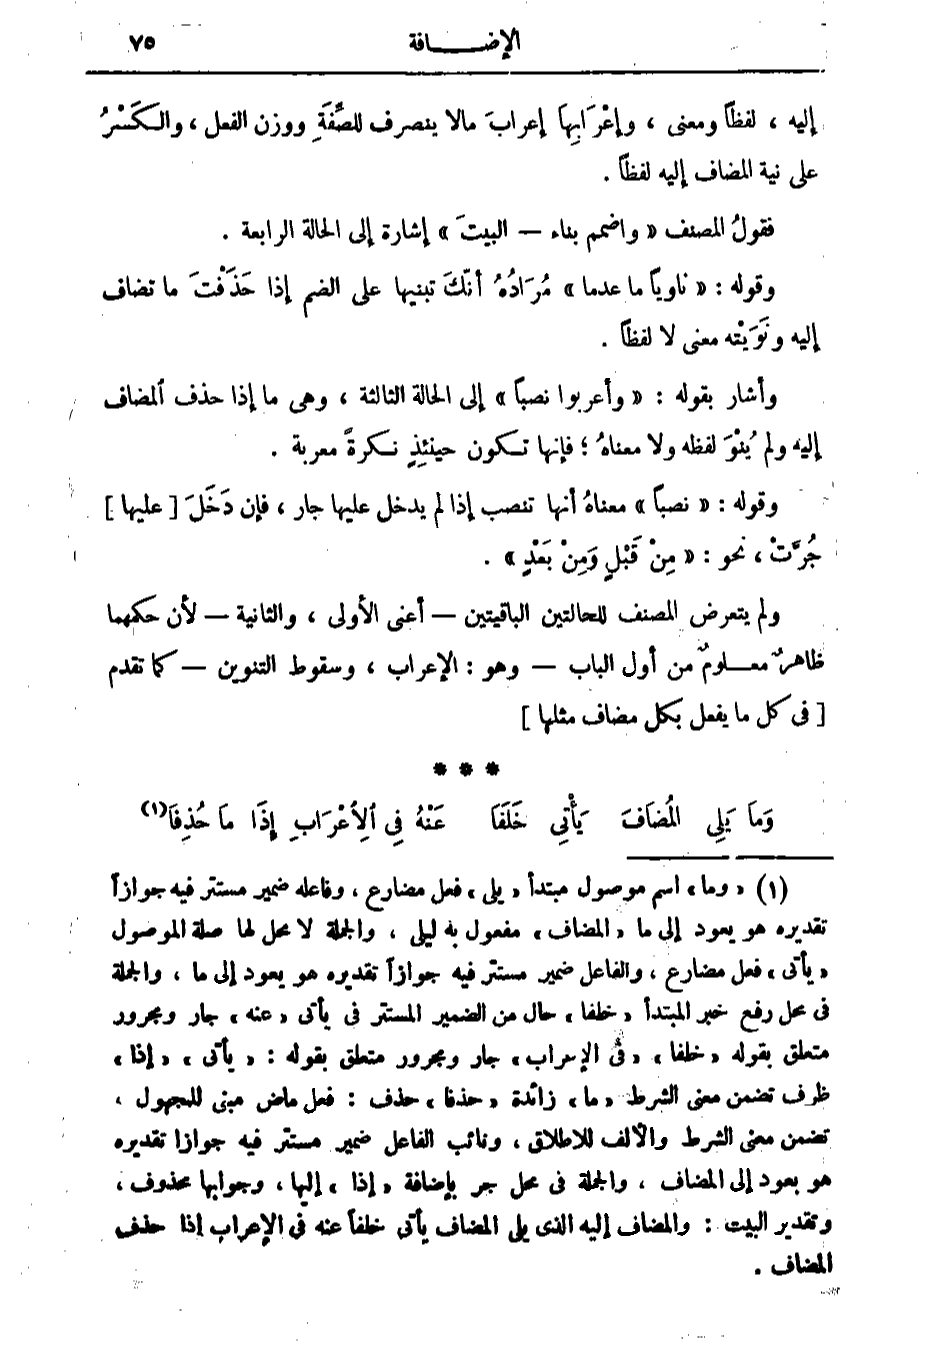 الإضـــــافة ٧٥
إليه ، لفظاً ومعنى ، وإعْرَابِهَا إعرابَ مالا ينصرف للصِّفَةِ ووزن الفعل ، والكَسْرُ
على نية المضاف إليه لفظاً .
فقولُ المصنف « واضمم بناء — البيتَ » إشارة إلى الحالة الرابعة .
وقوله : « ناوياً ما عدما » مُرَادُهُ أنّكَ تبنيها على الضم إذا حَذَفْتَ ما تضاف
إليه ونَوَيْته معنى لا لفظاً .
وأشار بقوله : « وأعربوا نصباً » إلى الحالة الثالثة ، وهى ما إذا حذف المضاف
إليه ولم يُنْوَ لفظه ولا معناهُ ؛ فإنها تكون حينئذٍ نكرةً معربة .
وقوله : « نصباً » معناهُ أنها تنصب إذا لم يدخل عليها جار ، فإن دَخَلَ [ عليها ]
جُرَّتْ ، نحو : « مِنْ قَبْلٍ وَمِنْ بَعْدٍ » .
ولم يتعرض المصنف للحالتين الباقيتين — أعنى الأولى ، والثانية — لأن حكمهما
ظاهرٌ معـــلومٌ من أول الباب — وهو : الإعراب ، وسقوط التنوين — كما تقدم
[ فى كل ما يفعل بكل مضاف مثلها ]
* * *
وَمَا يَلِى الْمُضَافَ يَأْتِى خَلَفَا عَنْهُ فِى الِاعْرَابِ إِذَا مَا حُذِفَا(١)
(١) «وما» اسم موصول مبتدأ «يلى» فعل مضارع ، وفاعله ضمير مستتر فيه جوازاً
تقديره هو يعود إلى ما «المضاف» مفعول به ليلى ، والجملة لا محل لها صلة الموصول
«يأتى» فعل مضارع ، والفاعل ضمير مستتر فيه جوازاً تقديره هو يعود إلى ما ، والجملة
فى محل رفع خبر المبتدأ «خلفا» حال من الضمير المستتر فى يأتى «عنه» جار ومجرور
متعلق بقوله «خلفا» «فى الإعراب» جار ومجرور متعلق بقوله : «يأتى» «إذا»
ظرف تضمن معنى الشرط «ما» زائدة «حذفا» حذف : فعل ماض مبنى للمجهول ،
تضمن معنى الشرط والألف للاطلاق ، ونائب الفاعل ضمير مستتر فيه جوازا تقديره
هو يعود إلى المضاف ، والجملة فى محل جر بإضافة «إذا» إليها ، وجوابها محذوف ،
وتقدير البيت : والمضاف إليه الذى يلى المضاف يأتى خلفاً عنه فى الإعراب إذا حذف
المضاف .